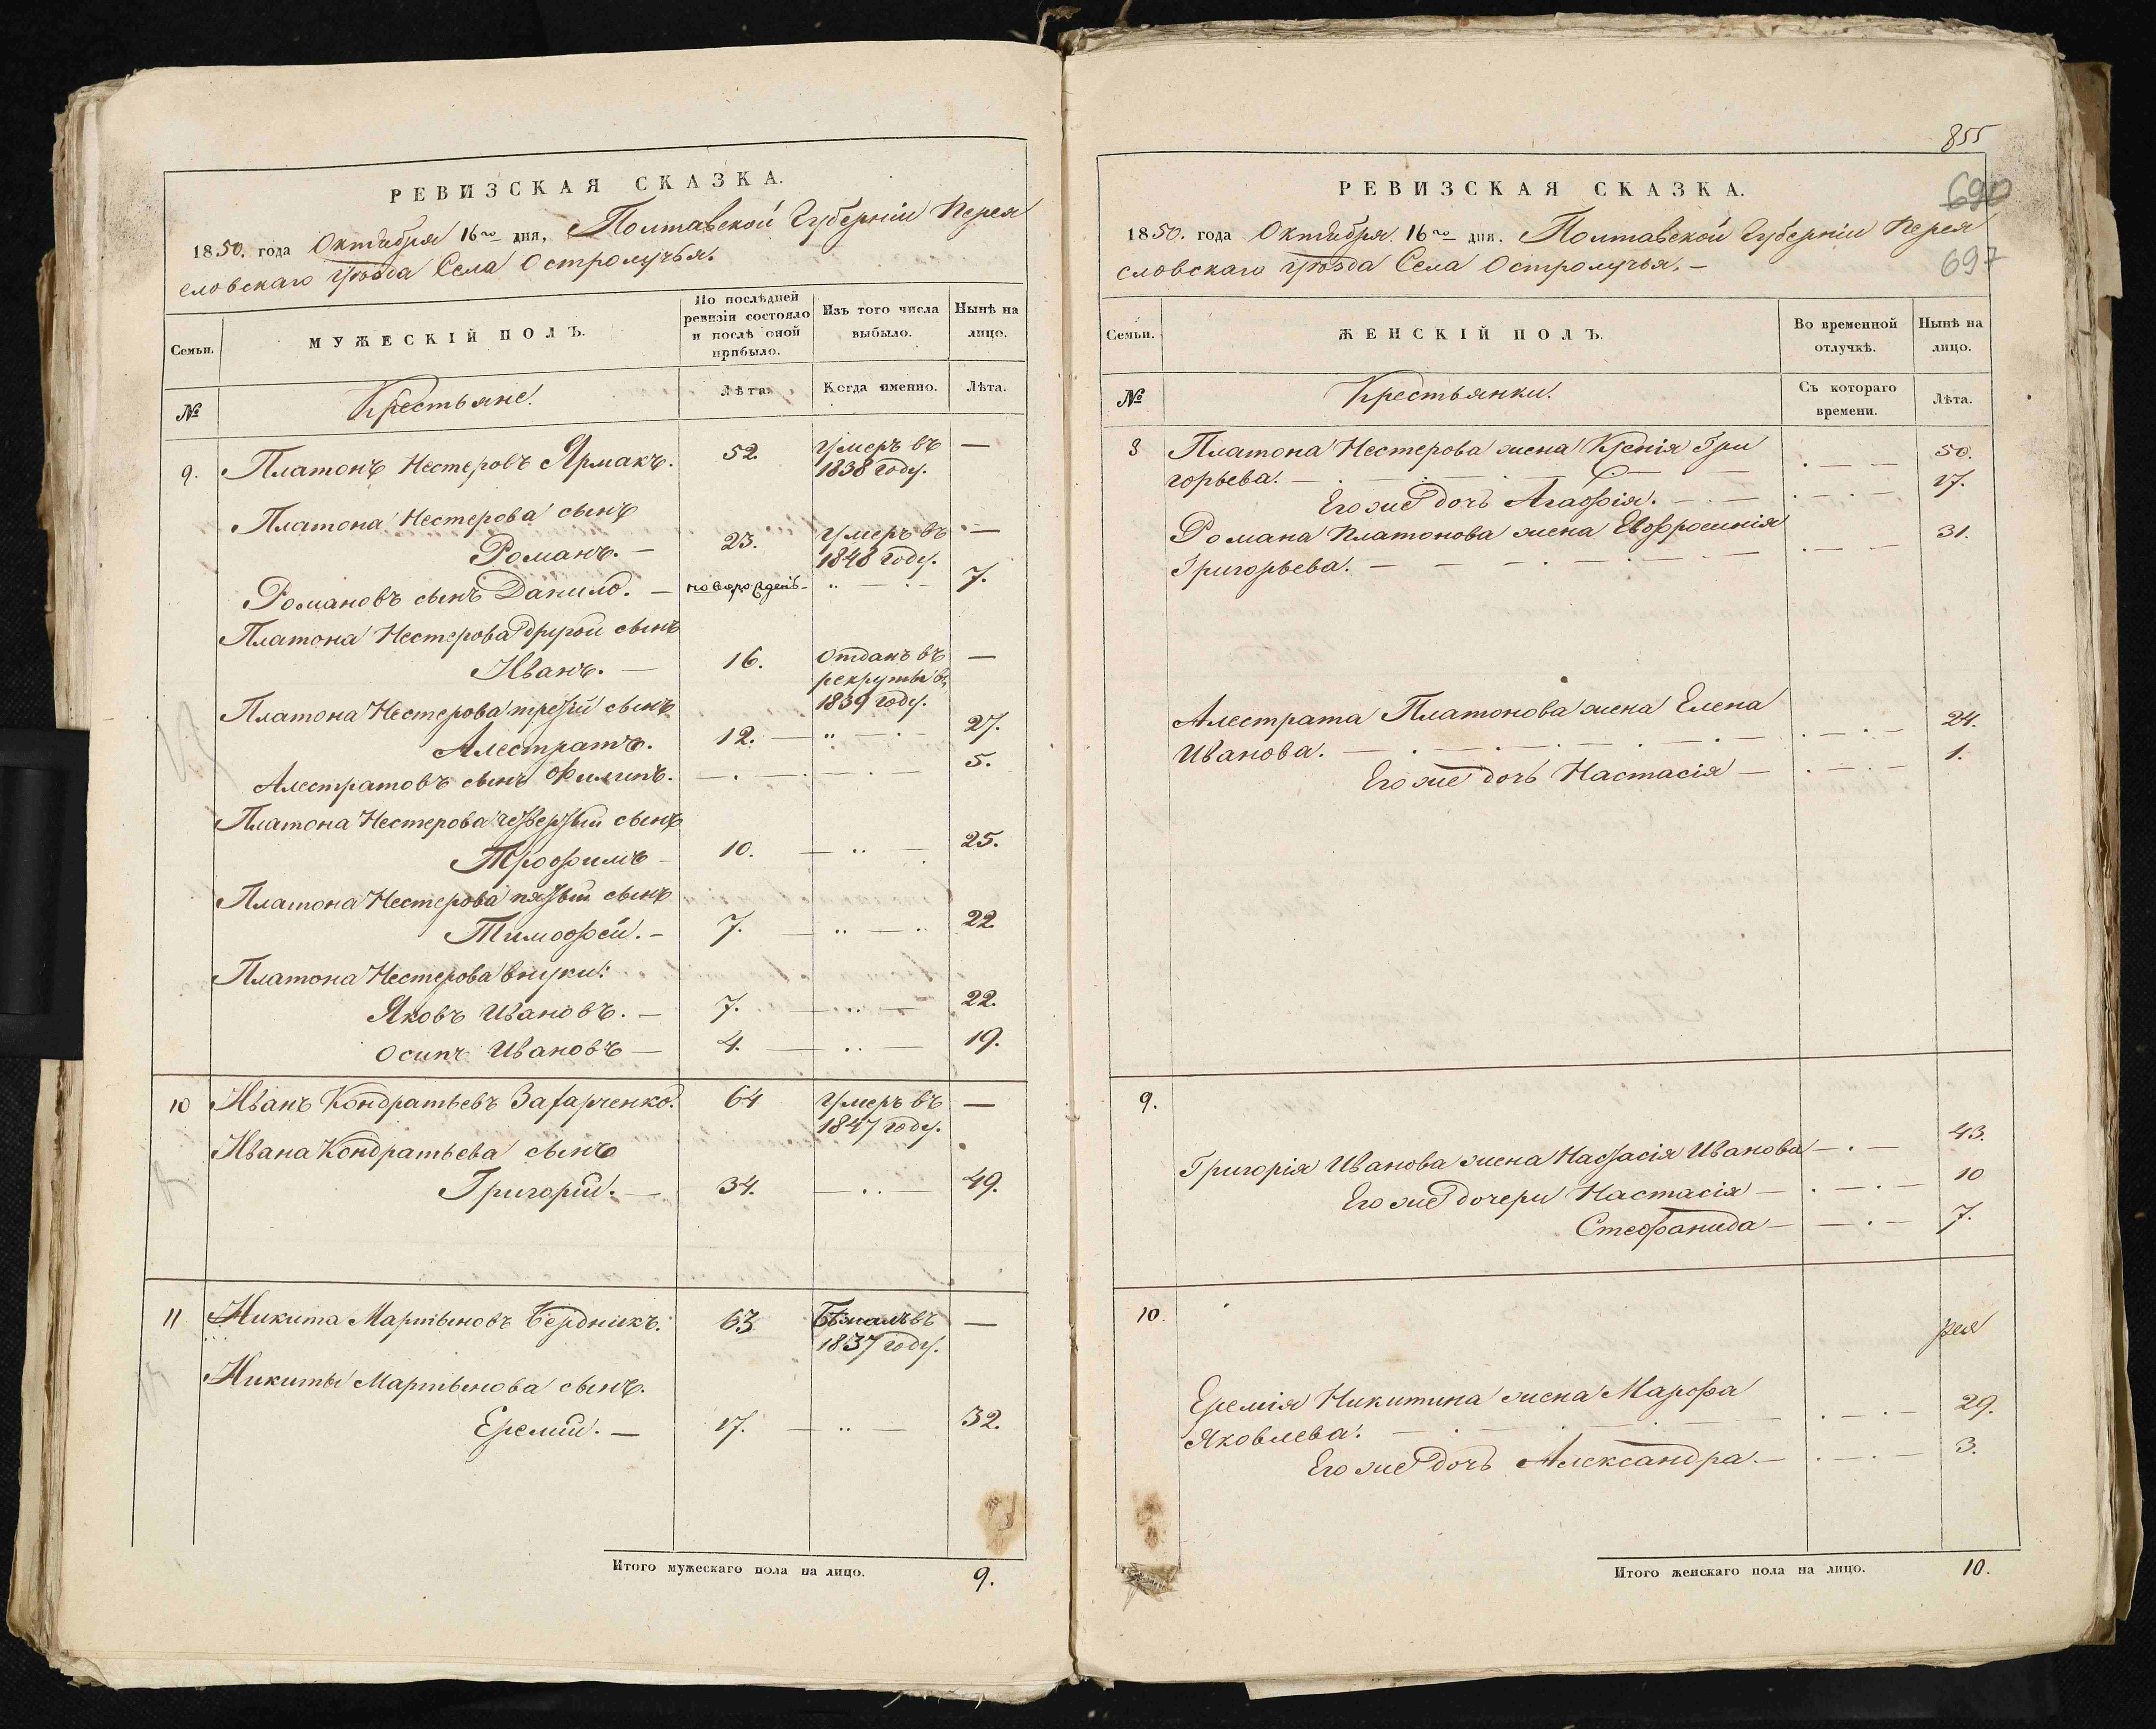 РЕВИЗСКАЯ СКАЗКА.
1850. года Октября 16го дня, Полтавской Губерніи Перея
словскаго Уѣзда Села Остролучья.
Семьи.
МУЖЕСКІЙ ПОЛЪ.
По послѣдней ревизіи состояло и послѣ оной прибыло.
Изъ того числа выбыло.
Нынѣ на лицо.
№
Крестьяне.
Лѣта.
Когда именно.
Лѣта.
9. Платонъ Нестеровъ Ярмакъ. 52. Умеръ въ —
1838 году.
Платона Нестерова сынъ
Романъ. — 23. Умеръ въ —
1848 году.
Романовъ сынъ Данило. — новорожденъ- 7.
Платона Нестерова другой сынъ
Иванъ. — 16. Отданъ въ —
рекруты въ
1839 году.
Платона Нестерова третій сынъ
Алестратъ. 12. — 27.
Алестратовъ сынъ Филипъ. — 5.
Платона Нестерова четвертый сынъ
Трофимъ — 10. — 25.
Платона Нестерова пятый сынъ
Тимофей. — 7. — 22.
Платона Нестерова внуки:
Яковъ Ивановъ. — 7. — 22.
Осипъ Ивановъ — 4. — 19.
10 Иванъ Кондратьевъ Захарченко. 64 Умеръ въ —
1847 году.
Ивана Кондратьева сынъ
Григорій. — 34. — 49.
11 Никита Мартыновъ Бердникъ. 63 Бѣжалъ въ —
1837 году.
Никиты Мартынова сынъ.
Еремій. — 17. — 32.
Итого мужескаго пола на лицо. 9.
855
690
697
РЕВИЗСКАЯ СКАЗКА.
1850. года Октября 16го дня. Полтавской Губерніи Перея
словскаго Уѣзда Села Остролучья. —
Семьи.
ЖЕНСКІЙ ПОЛЪ.
Во временной отлучкѣ.
Нынѣ на лицо.
№
Крестьянки.
Съ котораго времени.
Лѣта.
8 Платона Нестерова жена Ксенія Гри
горьева. — 50.
Его же дочь Агафія. — 17.
Романа Платонова жена Евфросинія
Григорьева. — 31.
Алестрата Платонова жена Елена
Иванова. — 24.
Его же дочь Настасія — 1.
9.
Григорія Иванова жена Настасія Иванова — 43.
Его же дочери Настасія — 10
Стефанида — 7.
10.
Еремія Никитина жена Марфа
Яковлева. — 29.
Его же дочь Александра. — 3.
Итого женскаго пола на лицо. 10.